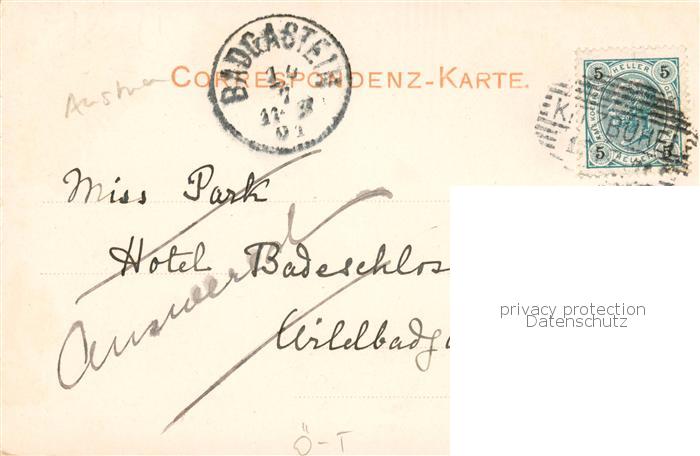 BADGASTEIN
14
7
01
CORRESPONDENZ-KARTE.
Austria
5 HELLER 5
5 5
Miss Park
Hotel Badeschlos
Wildbadga
Answered
privacy protection
Datenschutz
Ö-T